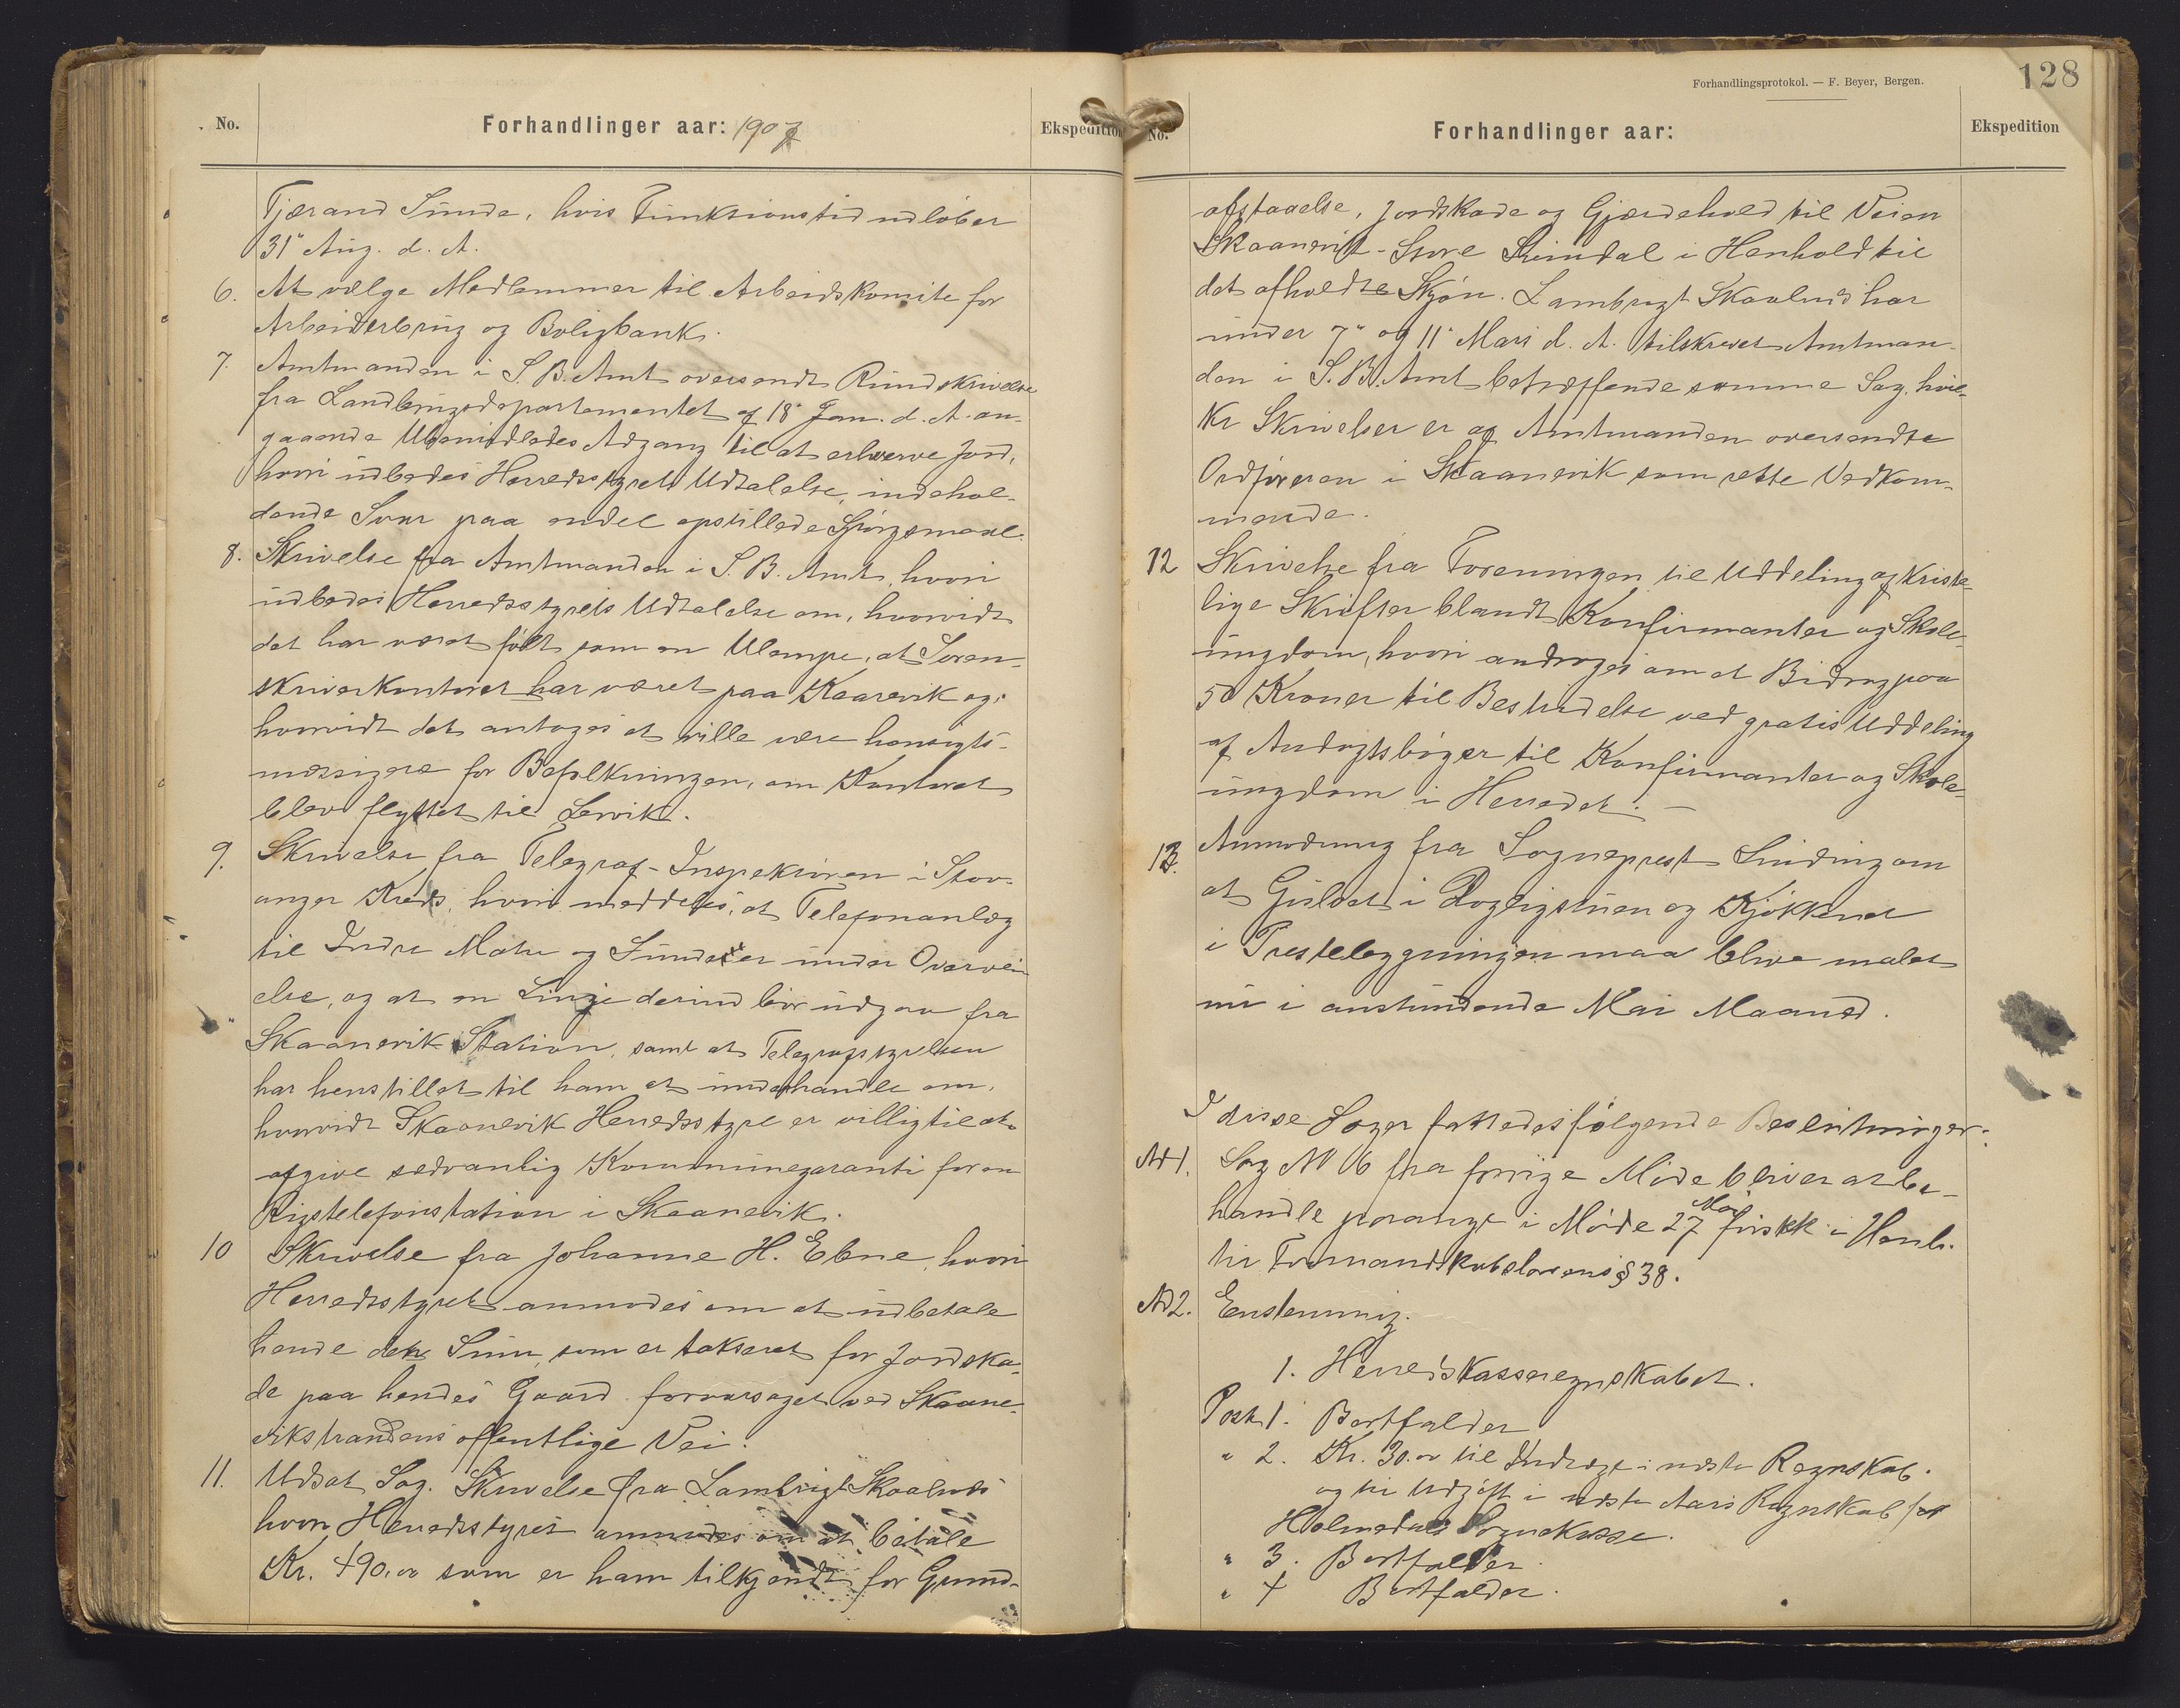 No.
Forhandlinger aar: 1907
Ekspedition
Tjærand Sunde, hvis Funktionstid udløber
31' Aug. d. A.
6. At vælge Medlemmer til Arbeidskomite for
Arbeiderbrug og Boligbank.
7. Amtmanden i S. B. Amt oversendt Rundskrivelse
fra Landbrugsdepartementet af 18' Jan. d. A. an-
gaaende Ubemidledes Adgang til at erhverve Jord,
hvori udbedes Herredsstyrets Udtalelse, indehol-
dende Svar paa endel opstillede Spørgsmaal.
8. Skrivelse fra Amtmanden i S. B. Amt, hvori
udbedes Herredsstyrets Udtalelse om, hvorvidt
det har været følt som en Ulempe, at Soren-
skriverkontoret har været paa Kaarevik og
hvorvidt det antages at ville være hensigts-
mæssigere for Befolkningen, om Kontoret
blev flyttet til Lervik.
9. Skrivelse fra Telegraf-Inspektøren i Stav-
anger Kreds, hvori meddeles, at Telefonanlæg
til Indre Matre og Sunde er under Overvei-
else, og at en Linje derind bør udgaa fra
Skaanevik Station, samt at Telegrafstyrelsen
har henstillet til ham at underhandle om,
hvorvidt Skaanevik Herredsstyre er villig til at
afgive sedvanlig Kommunegaranti for en
Rigstelefonstation i Skaanevik.
10 Skrivelse fra Johanne H. Ebne, hvori
Herredsstyret anmodes om at udbetale
hende den Sum, som er takseret for Jordska-
de paa hendes Gaard foraarsaget ved Skaane-
vikstrandens offentlige Vei.
11. Udsat Sag. Skrivelse fra Lambrigt Skaalnes
hvori Herredsstyret anmodes om at betale
Kr. 490,00 som er ham tilkjendt for Grund-
Forhandlingsprotokol. — F. Beyer, Bergen.
128
No.
Forhandlinger aar:
Ekspedition
afstaaelse, Jordskade og Gjærdehold til Veien
Skaanevik - Store Skimdal i Henhold til
det afholdte Skjøn. Lambrigt Skaalnes har
under 7' og 11' Mars d. A. tilskrevet Amtman-
den i S. B. Amt betræffende samme Sag, hvil-
ke Skrivelser er af Amtmanden oversendte
Ordføreren i Skaanevik som rette Vedkom-
mende.
12 Skrivelse fra Foreningen til Uddeling af kriste-
lige Skrifter blandt Konfirmanter og Skole-
ungdom, hvori androges om et Bidrag paa
50 Kroner til Bestridelse ved gratis Uddeling
af Andagtsbøger til Konfirmanter og Skole-
ungdom i Herredet. —
13. Anmodning fra Sogneprest Sinding om
at Gulvet i Dagligstuen og Kjøkkenet
i Prestebygningen maa blive malet
nu i anstundende Mai Maaned.
I disse Sager fattedes følgende Beslutninger:
Ad 1. Sag No 6 fra forrige Møde bliver at be-
handle paanyt i Møde 27 Mai førstk. i Henh.
til Formandskabslovens § 38.
Ad 2. Enstemmig.
1. Herredskasseregnskabet.
Post 1. Bortfalder
" 2. Kr. 30.00 til Indtægt i næste Regnskab.
og til Udgift i næste Aars Regnskab for
Holmedals Sognekasse.
" 3. Bortfalder.
" 4 Bortfalder.